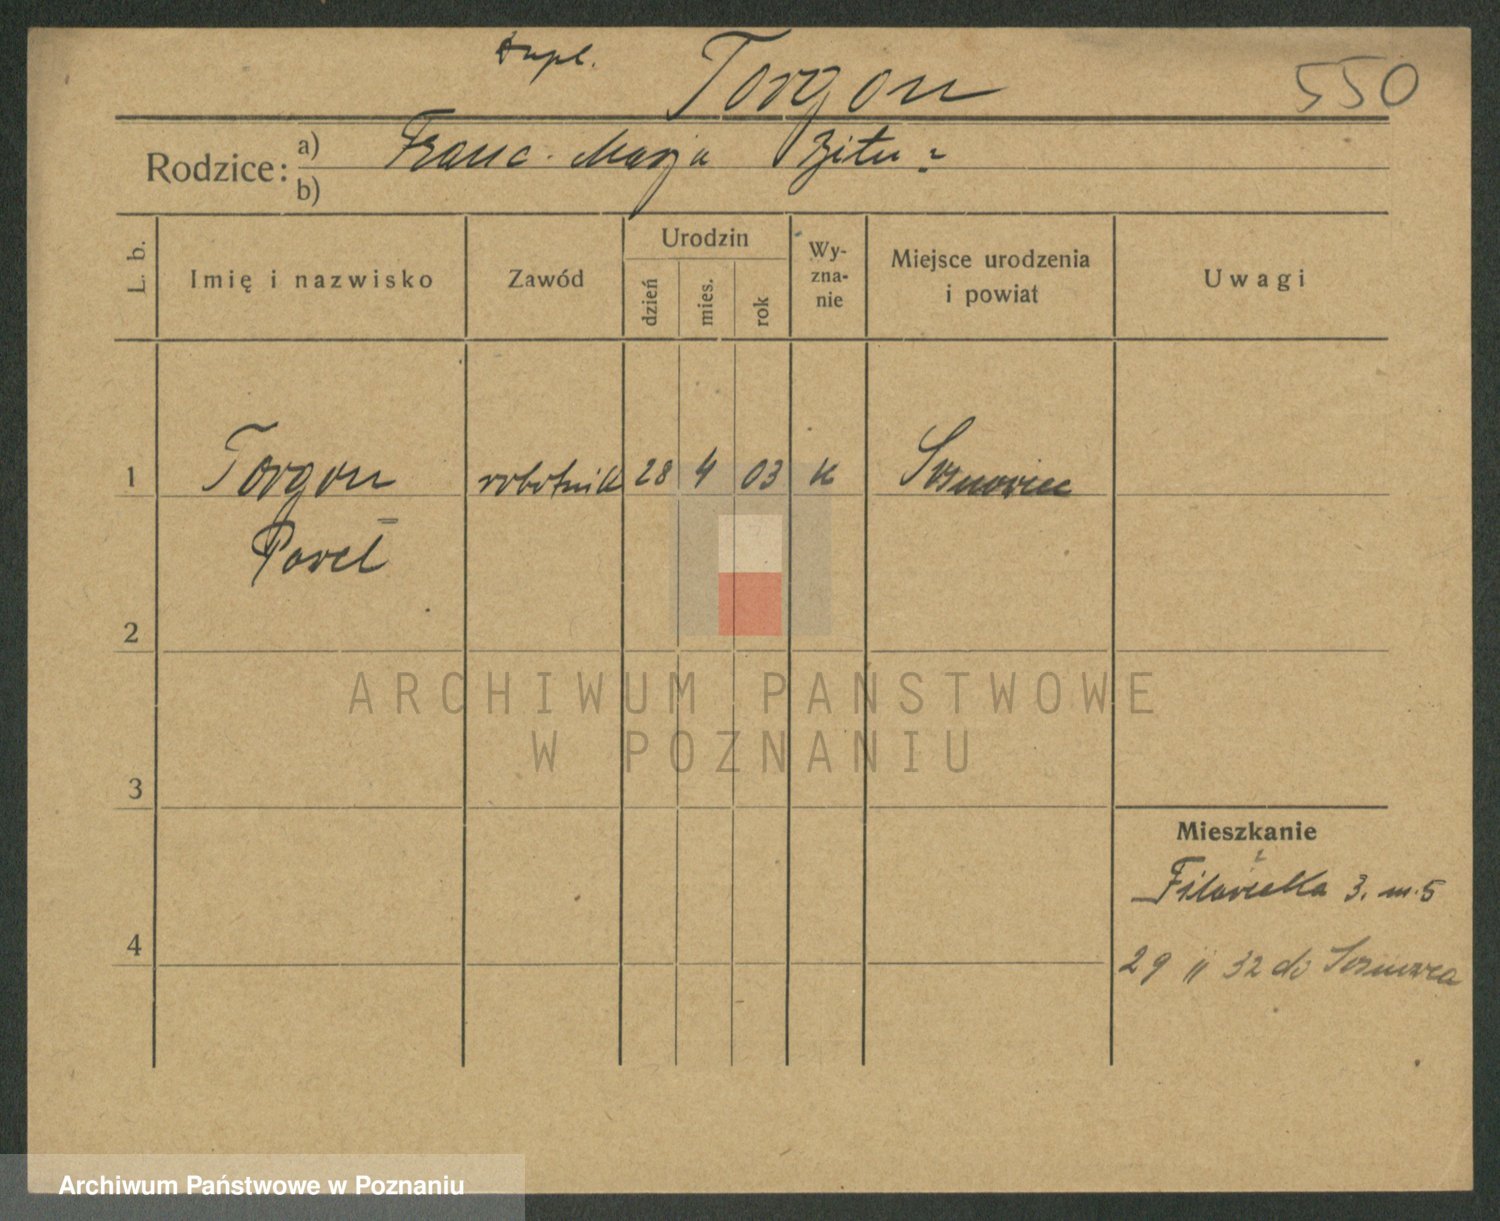 Dupl.
Torgon
550
Rodzice:
a) Franc. Marja Zitu
b)
L. b.
Imię i nazwisko
Zawód
Urodzin
dzień
mies.
rok
Wy-
zna-
nie
Miejsce urodzenia
i powiat
Uwagi
1 Torgon robotnik 28 4 03 K Sosnowiec
Paveł
2
3
4
Mieszkanie
3. m. 5
29 II 32 do Sosnowca
ARCHIWUM PAŃSTWOWE
W POZNANIU
Archiwum Państwowe w Poznaniu